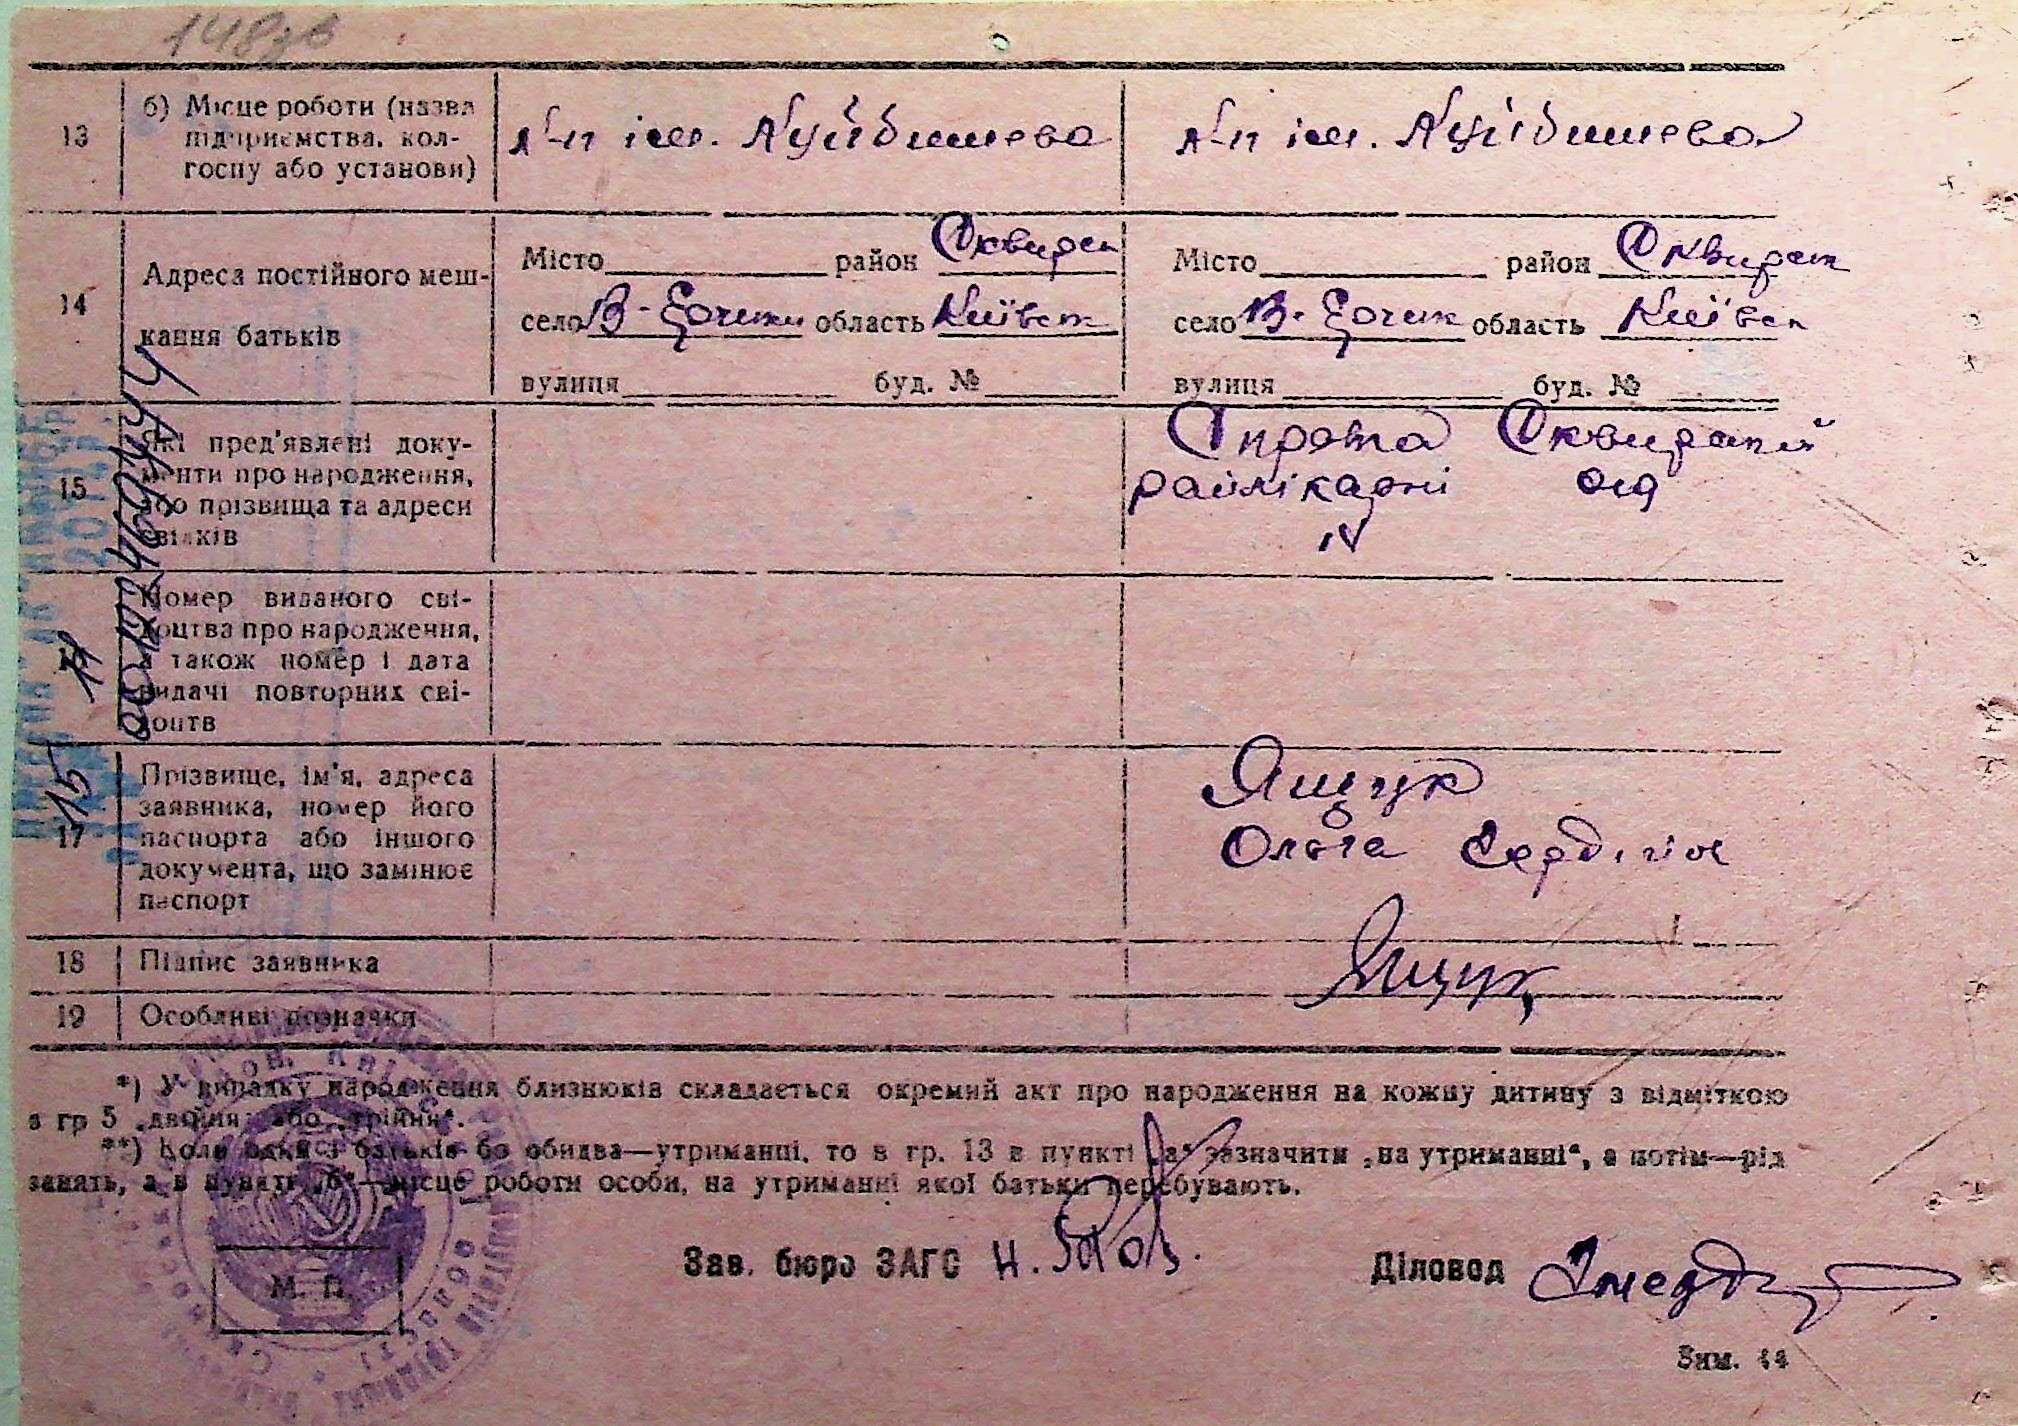 148зв
13
б) Місце роботи (назва
підприємства, кол-
госпу або установи)
К-п ім. Куйбишева
К-п ім. Куйбишева
14
Адреса постійного меш-
кання батьків
Місто район Сквирськ
село В-Єрчики область Київськ
вулиця буд. №
Місто район Сквирськ
село В-Єрчик область Київськ
вулиця буд. №
15
Які пред'явлені доку-
менти про народження,
або прізвища та адреси
свідків
Сквирської
райлікарні
16
Номер виданого сві-
доцтва про народження,
а також номер і дата
видачі повторних сві-
доцтв
17
Прізвище, ім'я, адреса
заявника, номер його
паспорта або іншого
документа, що замінює
паспорт
Ящук
Ольга
18
Підпис заявника
Ящук
19
Особливі позначки
*) У випадку народження близнюків складається окремий акт про народження на кожну дитину з відміткою
в гр 5 „двійня" або „трійня".
**) Коли один з батьків бо обидва—утриманці, то в гр. 13 в пункті „а" зазначити „на утриманні", а потім—рід
занять, а в пункті „б"—місце роботи особи, на утриманні якої батьки перебувають.
М. П.
Зав. бюро ЗАГС
Діловод
Зим. 44